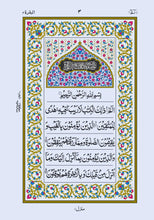 البقرة ٢
٣
الٓمّٓ ١
بِسْمِ اللهِ الرَّحْمٰنِ الرَّحِيْمِ
الٓمّٓ ذٰلِكَ الْكِتٰبُ لَا رَيْبَ فِيْهِ هُدًى
لِّلْمُتَّقِيْنَ الَّذِيْنَ يُؤْمِنُوْنَ بِالْغَيْبِ
وَيُقِيْمُوْنَ الصَّلٰوةَ وَمِمَّا رَزَقْنٰهُمْ
يُنْفِقُوْنَ وَالَّذِيْنَ يُؤْمِنُوْنَ بِمَآ اُنْزِلَ اِلَيْكَ وَمَآ
اُنْزِلَ مِنْ قَبْلِكَ وَبِالْاٰخِرَةِ هُمْ يُوْقِنُوْنَ
منزل ١